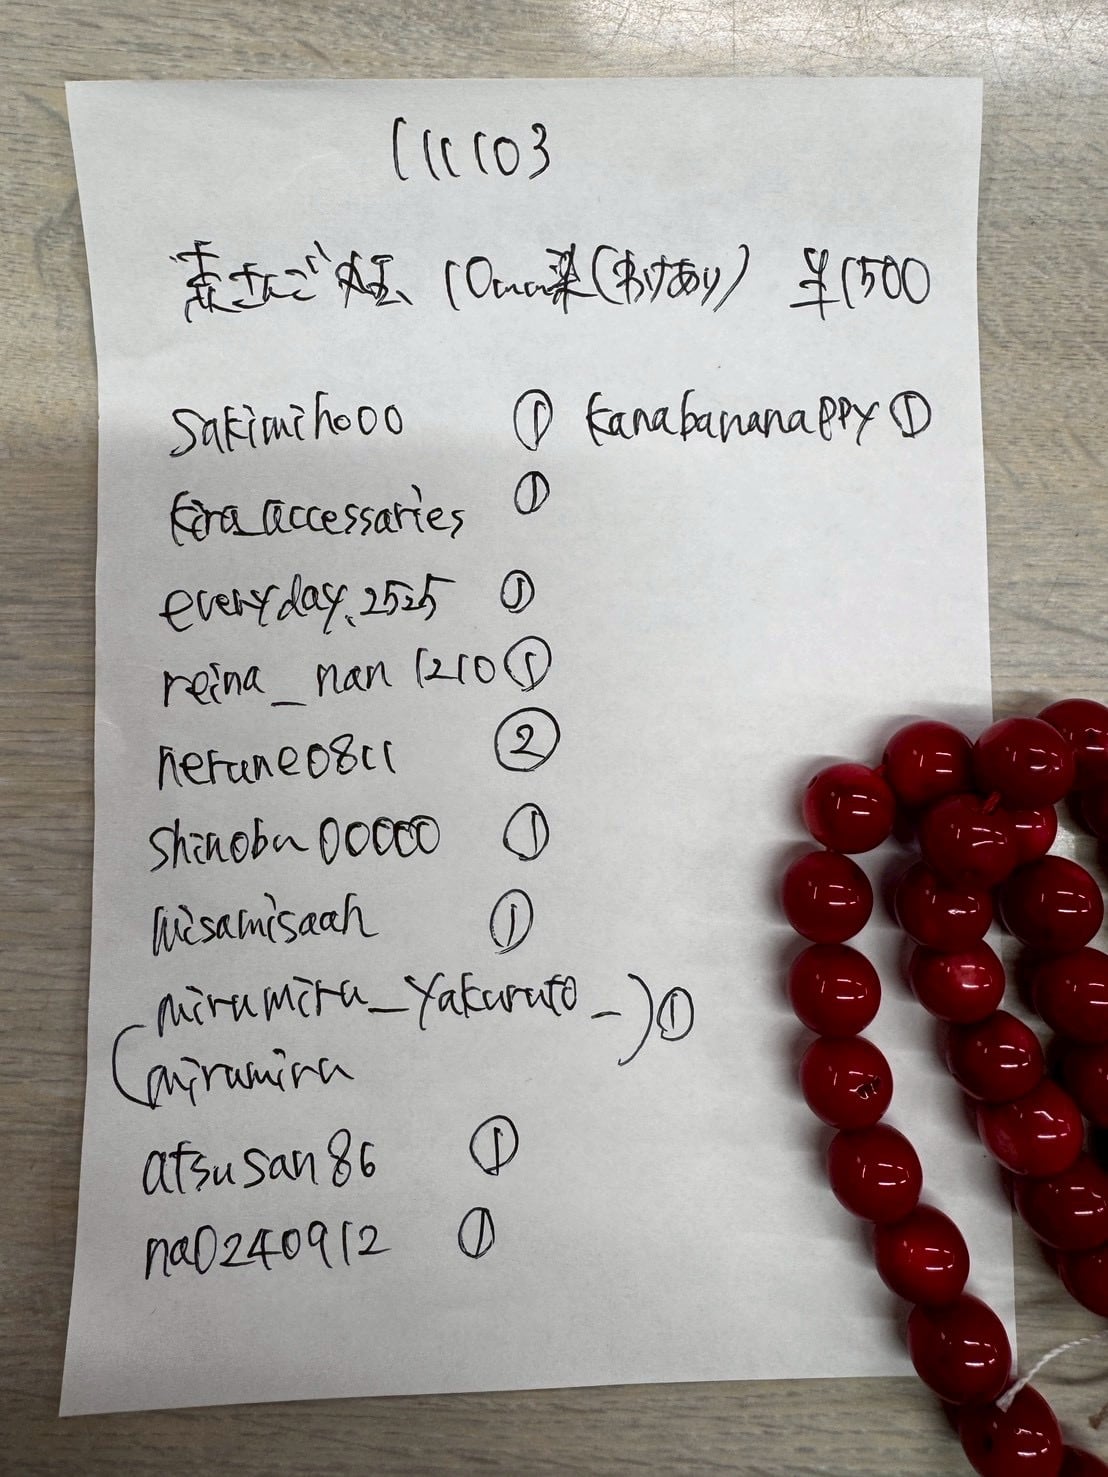 111103
赤さんご 丸玉 10mm染(わけあり) 半1500
sakimiho00 ① kanabananappy ①
kira_accessaries ①
everyday.2525 ①
reina_nan1210 ①
nerune0811 ②
shinobu00000 ①
misamisaah ①
(mirumiru_yakuruto_
mirumiru) ①
atsusan86 ①
na0240912 ①